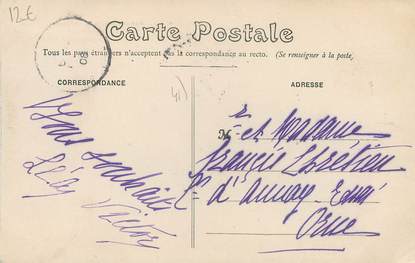 12€
Carte Postale
Tous les pays étrangers n'acceptent pas la correspondance au recto. (Se renseigner à la poste).
CORRESPONDANCE
ADRESSE
Vous souhaite
M.r et Madame
Francis Chrétien
d'Aunay
Orne